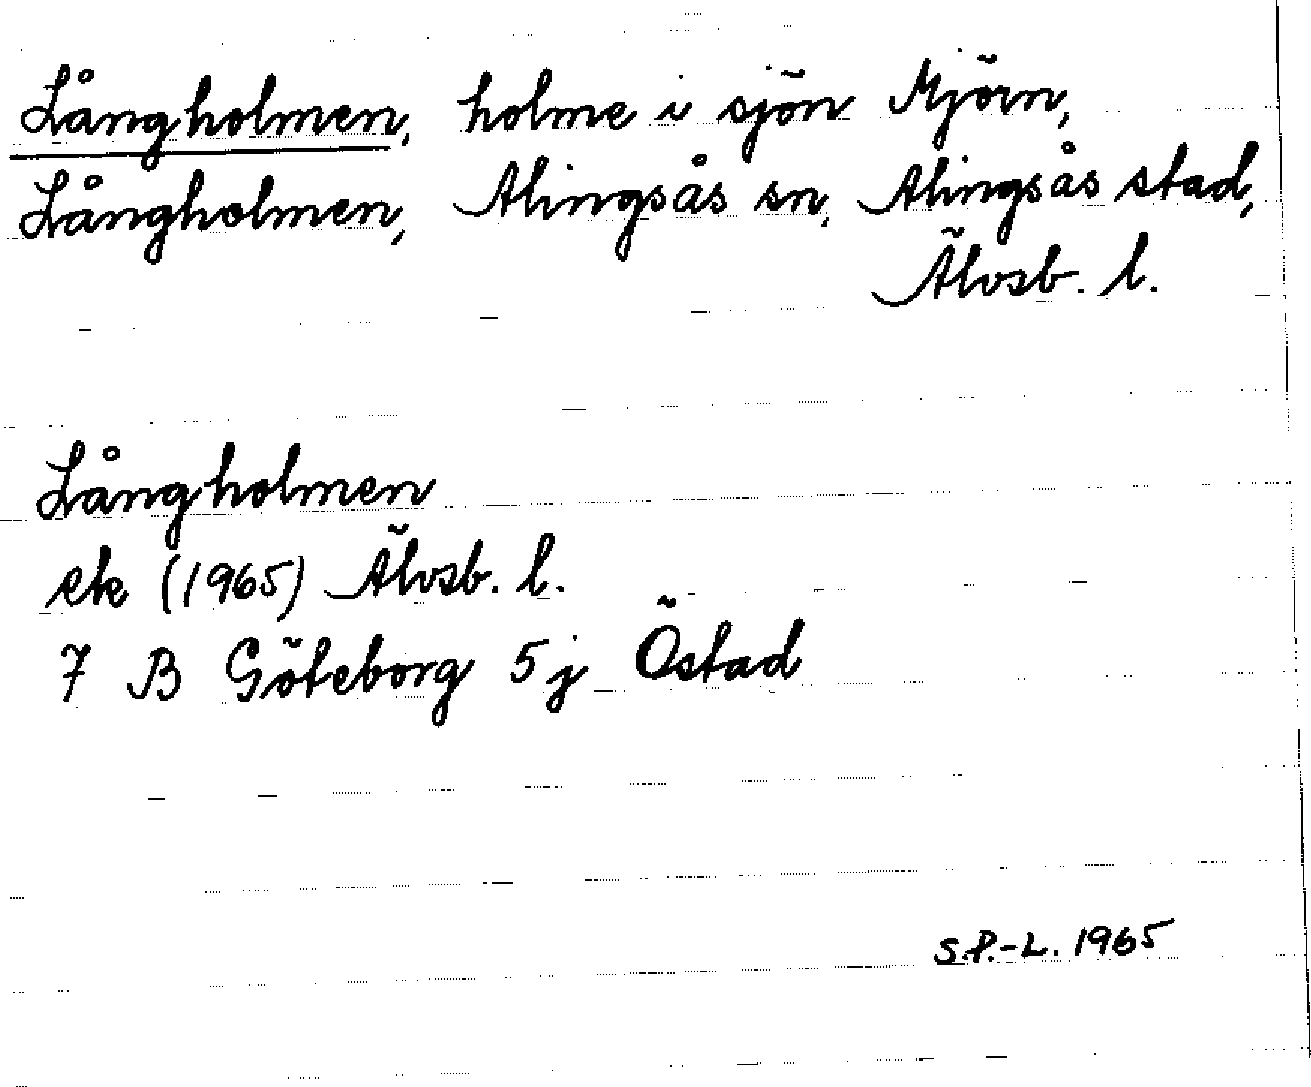 Långholmen, holme i sjön Mjörn,
Långholmen, Alingsås sn, Alingsås stad,
Älvsb. l.
Långholmen
ek (1965) Älvsb. l.
7 B Göteborg 5j Östad
S.P.-L. 1965